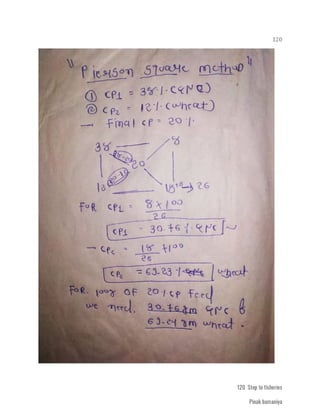 120
" Pierson square method "
① CP1 = 38 %. (GNC)
② CP2 = 12 %. (wheat)
— Final CP = 20 %.
38 8
20
12 18 → 26
FOR CP1 = 8 x 100
26
CP1 = 30.76 %. GNC
— CP2 = 18 x 100
26
CP2 = 69.23 %. wheat
FOR. 100g OF 20 % CP Feed
we need. 30.76 gm GNC &
69.24 gm wheat.
120 Step to fisheries
Pinak bamaniya